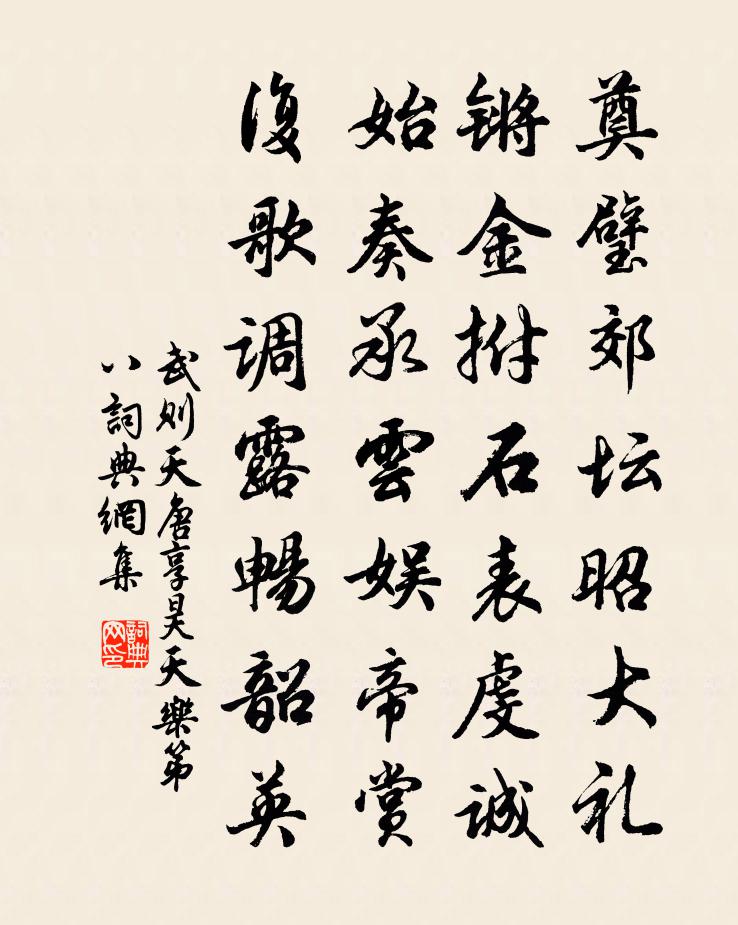 奠璧郊坛昭大礼
锵金拊石表虔诚
始奏承雲娱帝赏
復歌调露暢韶英
武则天唐享昊天樂第
八詞典網集
詞典网印